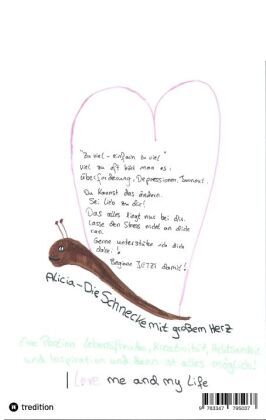 "Zu viel - einfach zu viel"
viel zu oft hört man es:
Überforderung, Depressionen, Burnout.
Du kannst das ändern.
Sei lieb zu dir!
Das alles liegt nur bei dir.
Lasse den Stress nicht an dich
ran.
Gerne unterstütze ich dich
dabei!
Beginne JETZT damit!
Alicia - Die Schnecke mit großem Herz
Eine Portion Lebensfreude, Kreativität, Achtsamkeit
und Inspiration und dann ist alles möglich!
I Love me and my Life
tredition
9 783347 795037